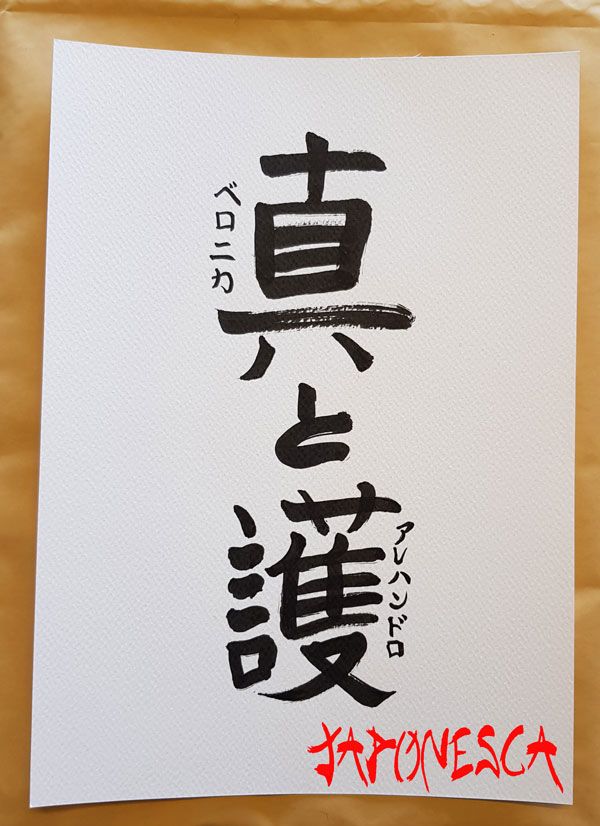 真と護
ベロニカ
アレハンドロ
JAPONESCA